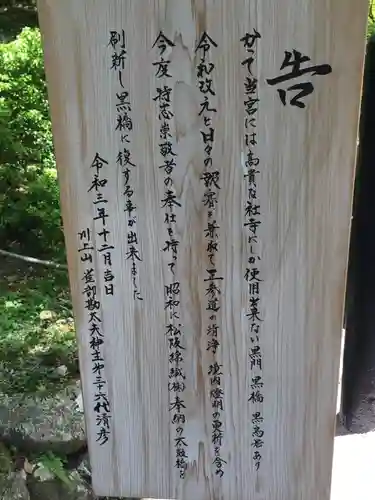 告
かつて当宮には高貴な社寺にしか使用出来ない黒門 黒橋 黒高塀あり
令和改元と日々の報賽を兼ねて正参道の清浄 境内燈明の更新を含め
今度 特志崇敬者の奉仕を持って 昭和に松阪綿織(株)奉納の太鼓橋を
刷新し黒橋に復する事が出来ました
令和三年十二月吉日
宮司 勘太夫 神主三十六代 清彦